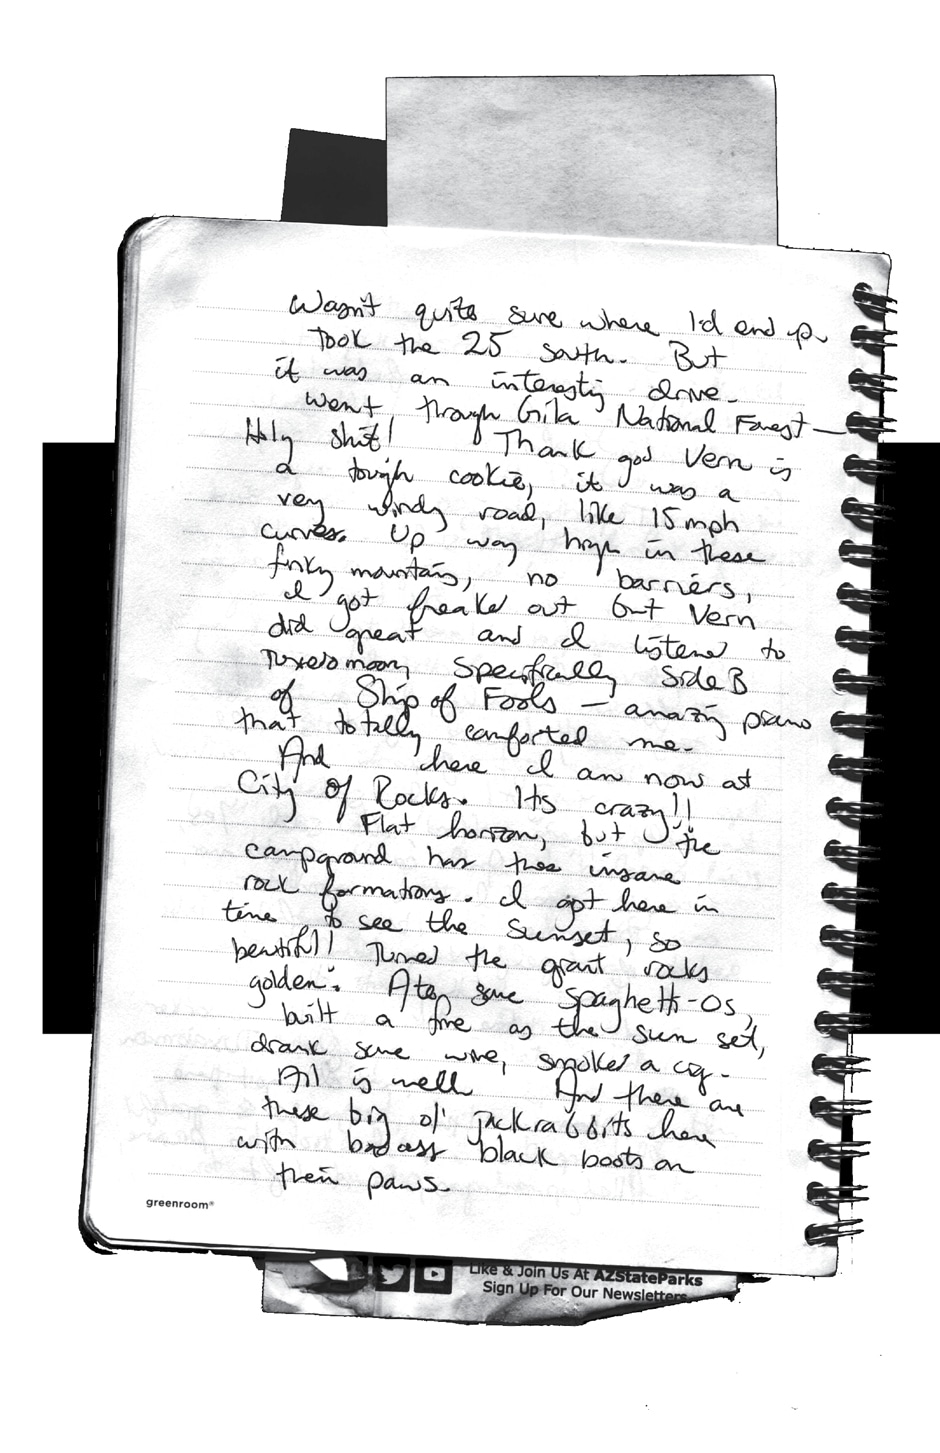 Wasn't quite sure where I'd end up.
Took the 25 south. But
it was an interesting drive.
Went through Gila National Forest—
Holy shit! Thank god Vern is
a tough cookie, it was a
very windy road, like 15 mph
curves. Up way high in these
finky mountains, no barriers,
I got freaked out but Vern
did great and I listened to
Tuxedomoon, specifically Side B
of Ship of Fools — amazing piano
that totally comforted me.
And here I am now at
City of Rocks. It's crazy!!
Flat horizon, but the
campground has these insane
rock formations. I got here in
time to see the sunset, so
beautiful! Turned the giant rocks
golden. Ate some Spaghetti-Os,
built a fire as the sun set,
drank some wine, smoked a cig.
All is well. And there are
these big ol' jackrabbits here
with badass black boots on
their paws.
greenroom®
Like & Join Us At AZStateParks
Sign Up For Our Newsletters